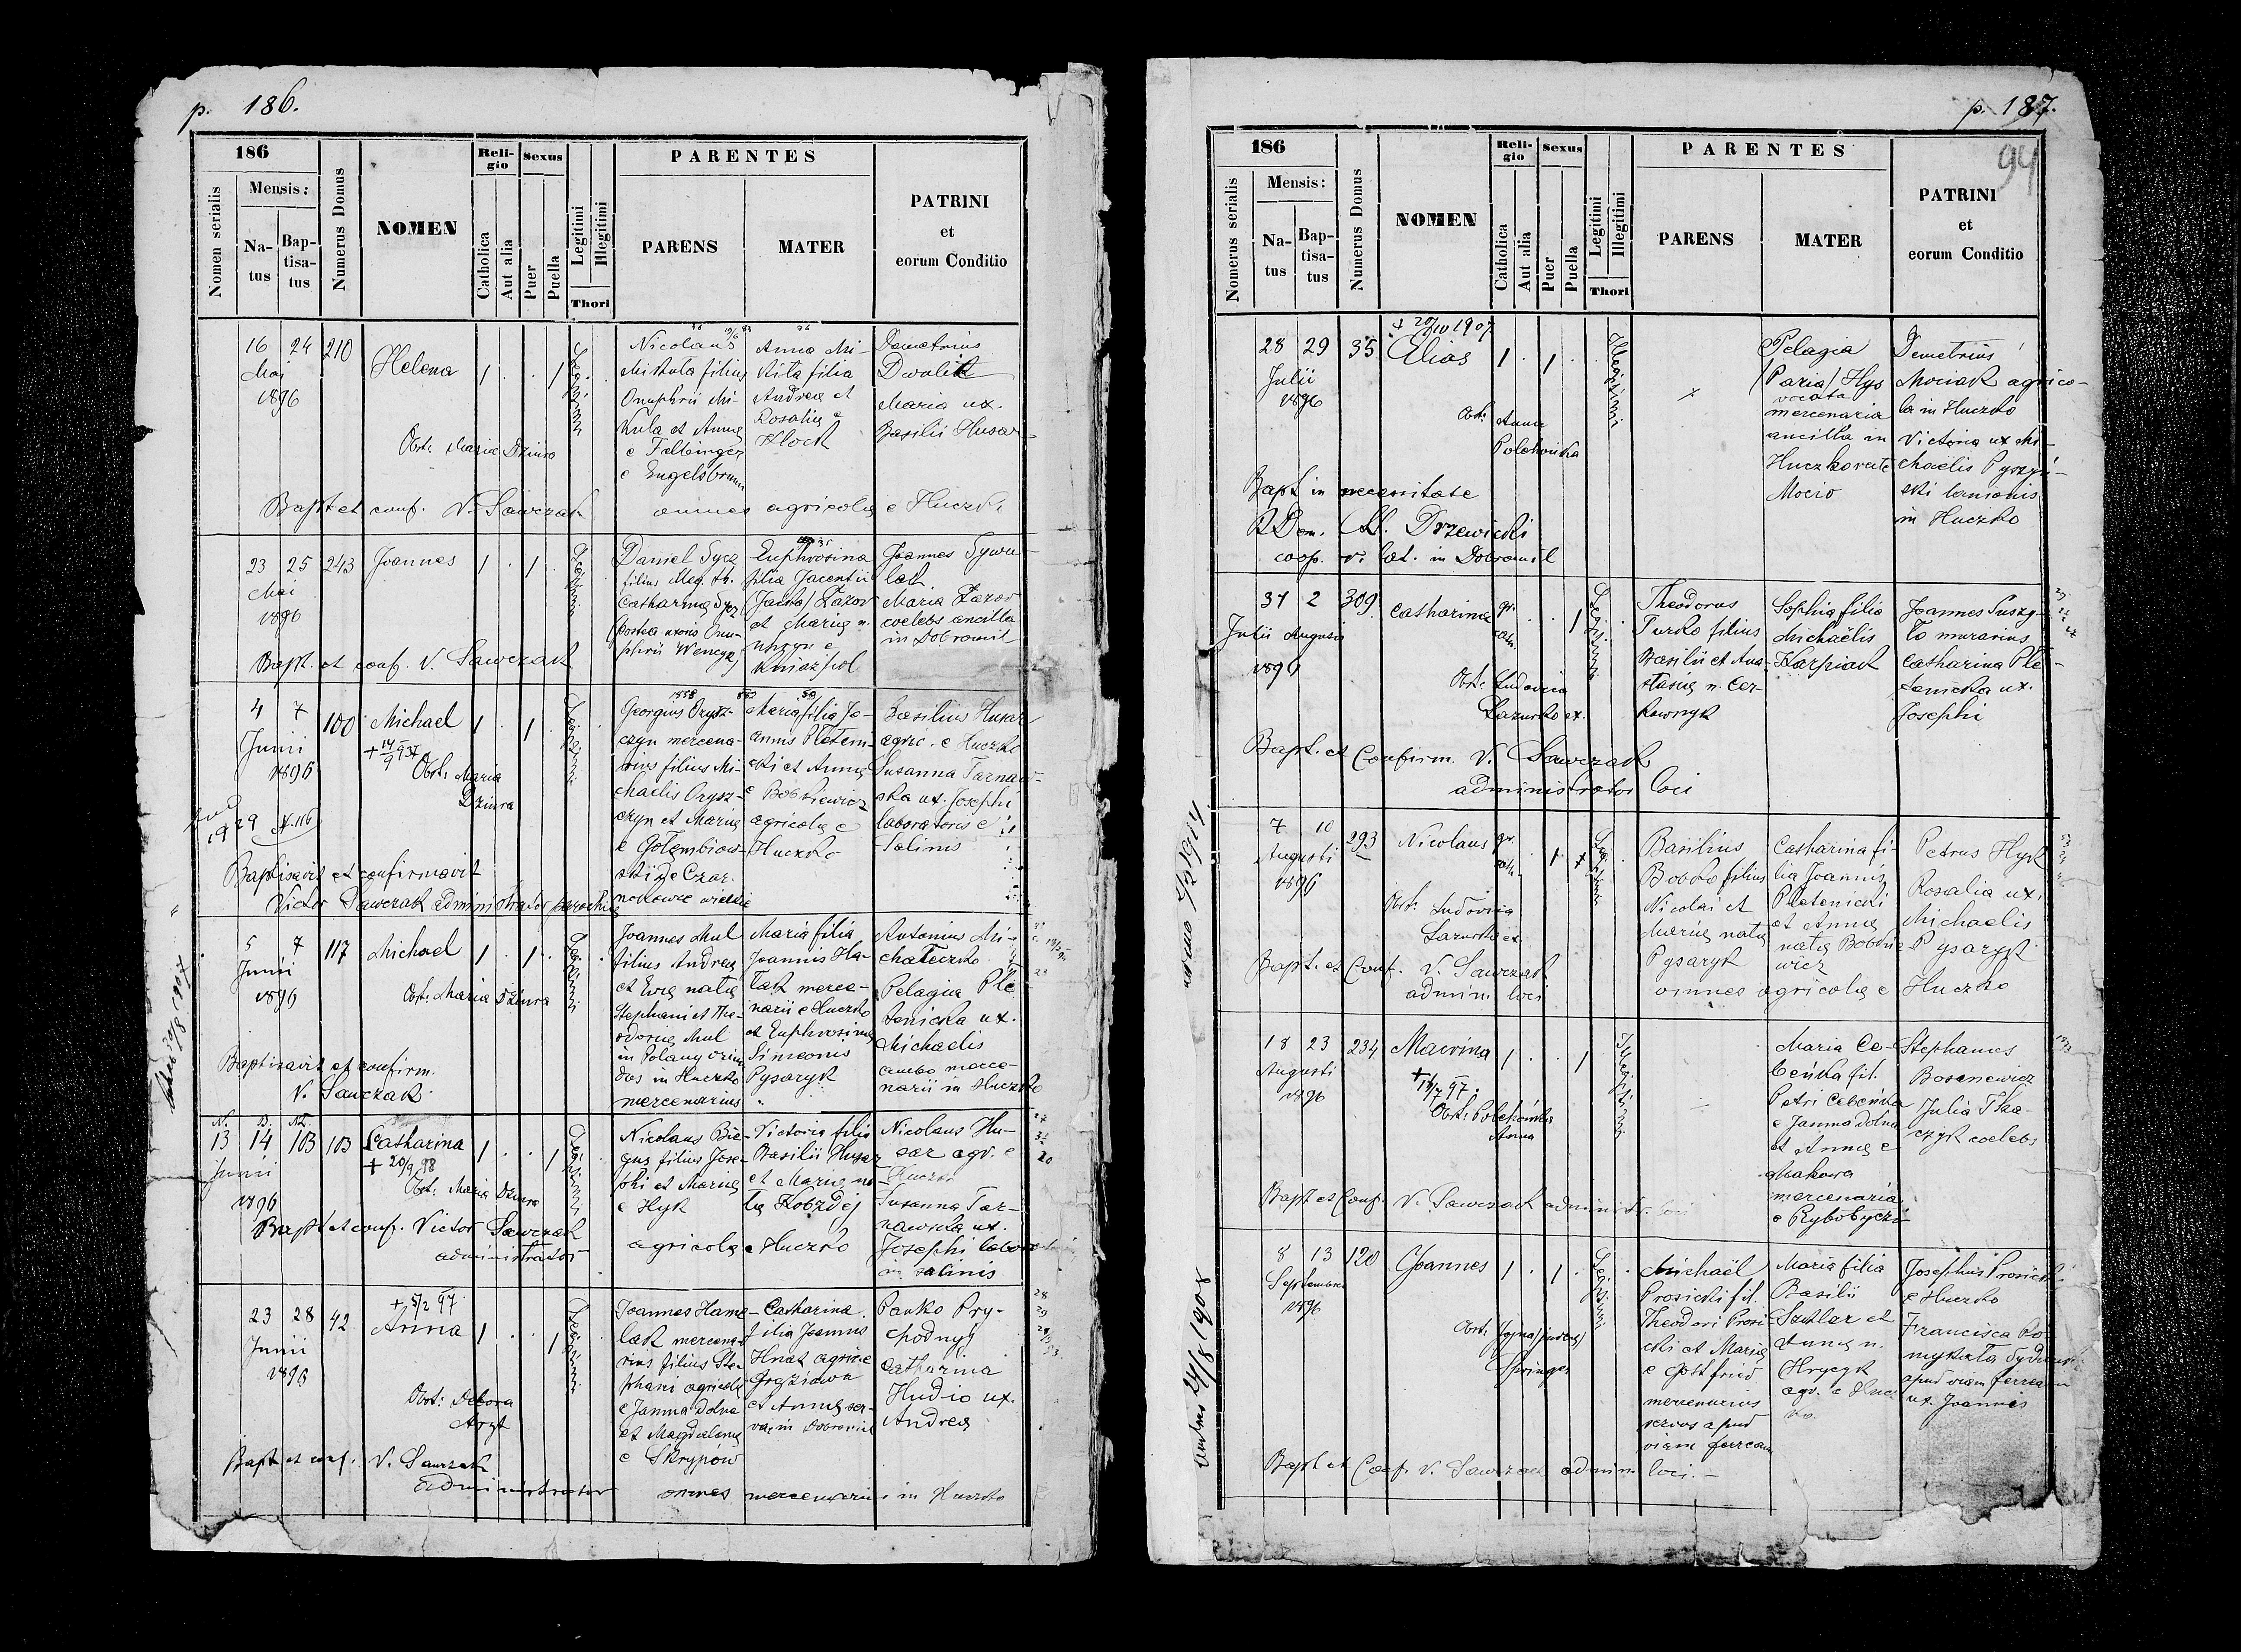 p. 186.
186
Nomen serialis
Mensis:
Na-
tus
Bap-
tisa-
tus
Numerus Domus
NOMEN
Reli-
gio
Catholica
Aut alia
Sexus
Puer
Puella
Legitimi
Illegitimi
Thori
PARENTES
PARENS
MATER
PATRINI
et
eorum Conditio
16 24 210
Mai
1896
Helena
Obst: Maria Dziura
Legitimi
Nicolaus
Mikula filius
Onuphrii Mi-
kula et Annae
e Falbinger
e Engelsbrunn
Anna Mi-
kita filia
Andreae et
Rosaliae
Klock
Demetrius
Dwulit
Maria ux.
Basilii Husar
Bapt et conf. V. Sawczak omnes agricolae e Huczko
23 25 243
Mai
1896
Joannes
Daniel Sycz
filius Meg. th.
Catharinae Sycz
(postea uxoris Onu-
phrii Wencyz)
Euphrosina
filia Jacentii
(Jacko) Lazor
et Mariae n.
e
Kniażpol
Joannes Sywu-
lak
Maria Lazor
coelebs ancilla
in Dobromil
Bapt. et conf. V. Sawczak
4 7 100
Junii
1896
Michael
+ 14/9 937
Obst: Maria
Dziura
1929 N. 116
Georgius Orysz-
czyn mercena-
rius filius Mi-
chaelis Orysz-
czyn et Mariae
e Gołembiow-
ski de Czar-
nokowce wielkie
Maria filia Jo-
annis Pleteni-
cki et Annae
e Bobkiewicz
agricolae e
Huczko
Basilius Husar
agric. e Huczko
Susanna Tarnaw-
ska ux. Josephi
laboratoris e
Salinis
Baptisavit et confirmavit
Victor Sawczak administrator parochiae
5 7 117
Junii
1896
Michael
Obst: Maria Dziura
Joannes Mul
filius Andreae
et Evae natae
Stephani et The-
odoriae Mul
in Polany
in Huczko
mercenarius
Maria filia
Joannis Ha-
lak merce-
narii e Huczko
et Euphrosinae
Simeonis
Pysaryk
Antonius Mi-
chaleczko
Pelagia Ple-
tenicka ux.
Michaelis
ambo merce-
narii in Huczko
Baptisavit et confirm.
V. Sawczak
N. B. ND.
13 14 103 103
Junii
1896
Catharina
+ 20/9 98
Obst: Maria Dziura
Nicolaus Bie-
gus filius Jose-
phi et Mariae
e Hyk
Victoria filia
Basilii Husar
et Mariae na-
tae Kobzdej
agricolae e Huczko
Nicolaus Hu-
sar agr. e
Huczko
Susanna Tar-
nawska ux.
Josephi laboratoris
in salinis
Bapt et conf. Victor Sawczak
administrator
23 28 42
Junii
1896
+ 5/2 97
Anna
Obst: Debora
Arzt
Joannes Hama-
lak mercena-
rius filius Ste-
phani agricolae
e Jamna dolna
et Magdalenae
e Skrypów
Catharina
filia Joannis
Hnat agric. e
Grąziowa
et Annae ser-
vae in Dobromil
Panko Pry-
chodnyj
Catharina
Hudio ux.
Andreae
Bapt et conf. V. Sawczak
administrator omnes mercenarii in Huczko
p. 187.
94
186
Nomerus serialis
Mensis:
Na-
tus
Bap-
tisa-
tus
Numerus Domus
NOMEN
Reli-
gio
Catholica
Aut alia
Sexus
Puer
Puella
Legitimi
Illegitimi
Thori
PARENTES
PARENS
MATER
PATRINI
et
eorum Conditio
28 29 35
Julii
1896
+ 20/IV 1907
Elias
Obst: Anna
Polchowska
Illegitimi
Pelagia
(Paria) Hys
vocata
mercenaria
ancilla in
Huczko
Mocio
Demetrius
Mociak agrico-
la in Huczko
Victoria ux Mi-
chaëlis Pyszyń-
ski lanionis
in Huczko
Bapt in necessitate
R Dom. Al. Drzewicki
coop. r. lat. in Dobromil
31 2 309
Julii Augusti
1896
Catharina
gr.
cath.
Obst: Ludovica
Lazurko ex.
Theodorus
Turko filius
Basilii et Ana-
stasiae n. Cer-
kownyk
Sophia filia
Michaëlis
Karpiak
Joannes Suszy-
lo murarius
Catharina Ple-
tenicka ux.
Josephi
Bapt. et Confirm. V. Sawczak
administrator loci
7 10 293
Augusti
1896
Nicolaus
gr.
cath.
Obst: Ludovica
Lazurko ex
Basilius
Bobko filius
Nicolai et
Mariae natae
Pysaryk
Catharina fi-
lia Joannis
Pletenicki
et Annae
natae Bobkie-
wicz
Petrus Hyk
Rosalia ux.
Michaelis
Pysaryk
omnes agricolae e Huczko
Bapt. et Conf. V. Sawczak
admin loci
18 23 234
Augusti
1896
Mawrina
+ 13/7 97.
Obst: Polchowska
Anna
Illegitimi
Maria Ce-
beńka fil.
Petri Cebeńka
e Jamna dolna
et Annae e
Makara
mercenaria
e Rybotycze
Stephanus
Bosenewicz
Julia Tka-
czyk coelebs
Bapt et Conf. V. Sawczak administr. loci
8 13 120
Septembris
1896
Joannes
Obst:
Springer
Michaël
Prosicki fil.
Theodori Prosi-
cki et Mariae
e Gottfried
mercenarius
servus apud
viam ferream
Maria filia
Basilii
Szutlar et
Annae n.
Hrycyk
agr. e Hucz-
ko.
Josephus Prosicki
e Huczko
Francisca Ro-
mykała
apud viam ferream
ux. Joannis
Bapt et Conf. V. Sawczak admin loci.